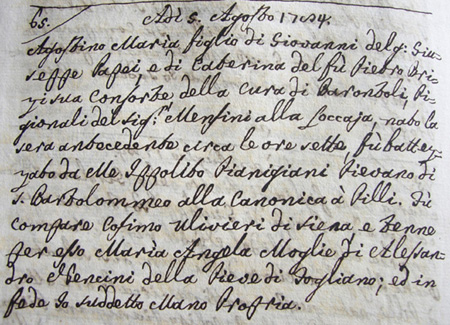 65. Adì 5. Agosto
Agostino Maria figlio di Giovanni del q: Giu-
seppe Papei, e di Caterina del fù Pietro Bri-
zi sua consorte della Cura di Barontoli, Pi-
gionali del Sig:r Mensini alla nato la
sera antecedente circa le ore sette, fù battez-
zato da Me Ippolito Pianigiani Pievano di
S. Bartolommeo alla Canonica à Pilli. Fù
compare Cosimo Ulivieri di Siena e tenne
per esso Maria Angela Moglie di Alessan-
dro della Pieve di Fogliano; ed in
fede Io suddetto Mano Propria.